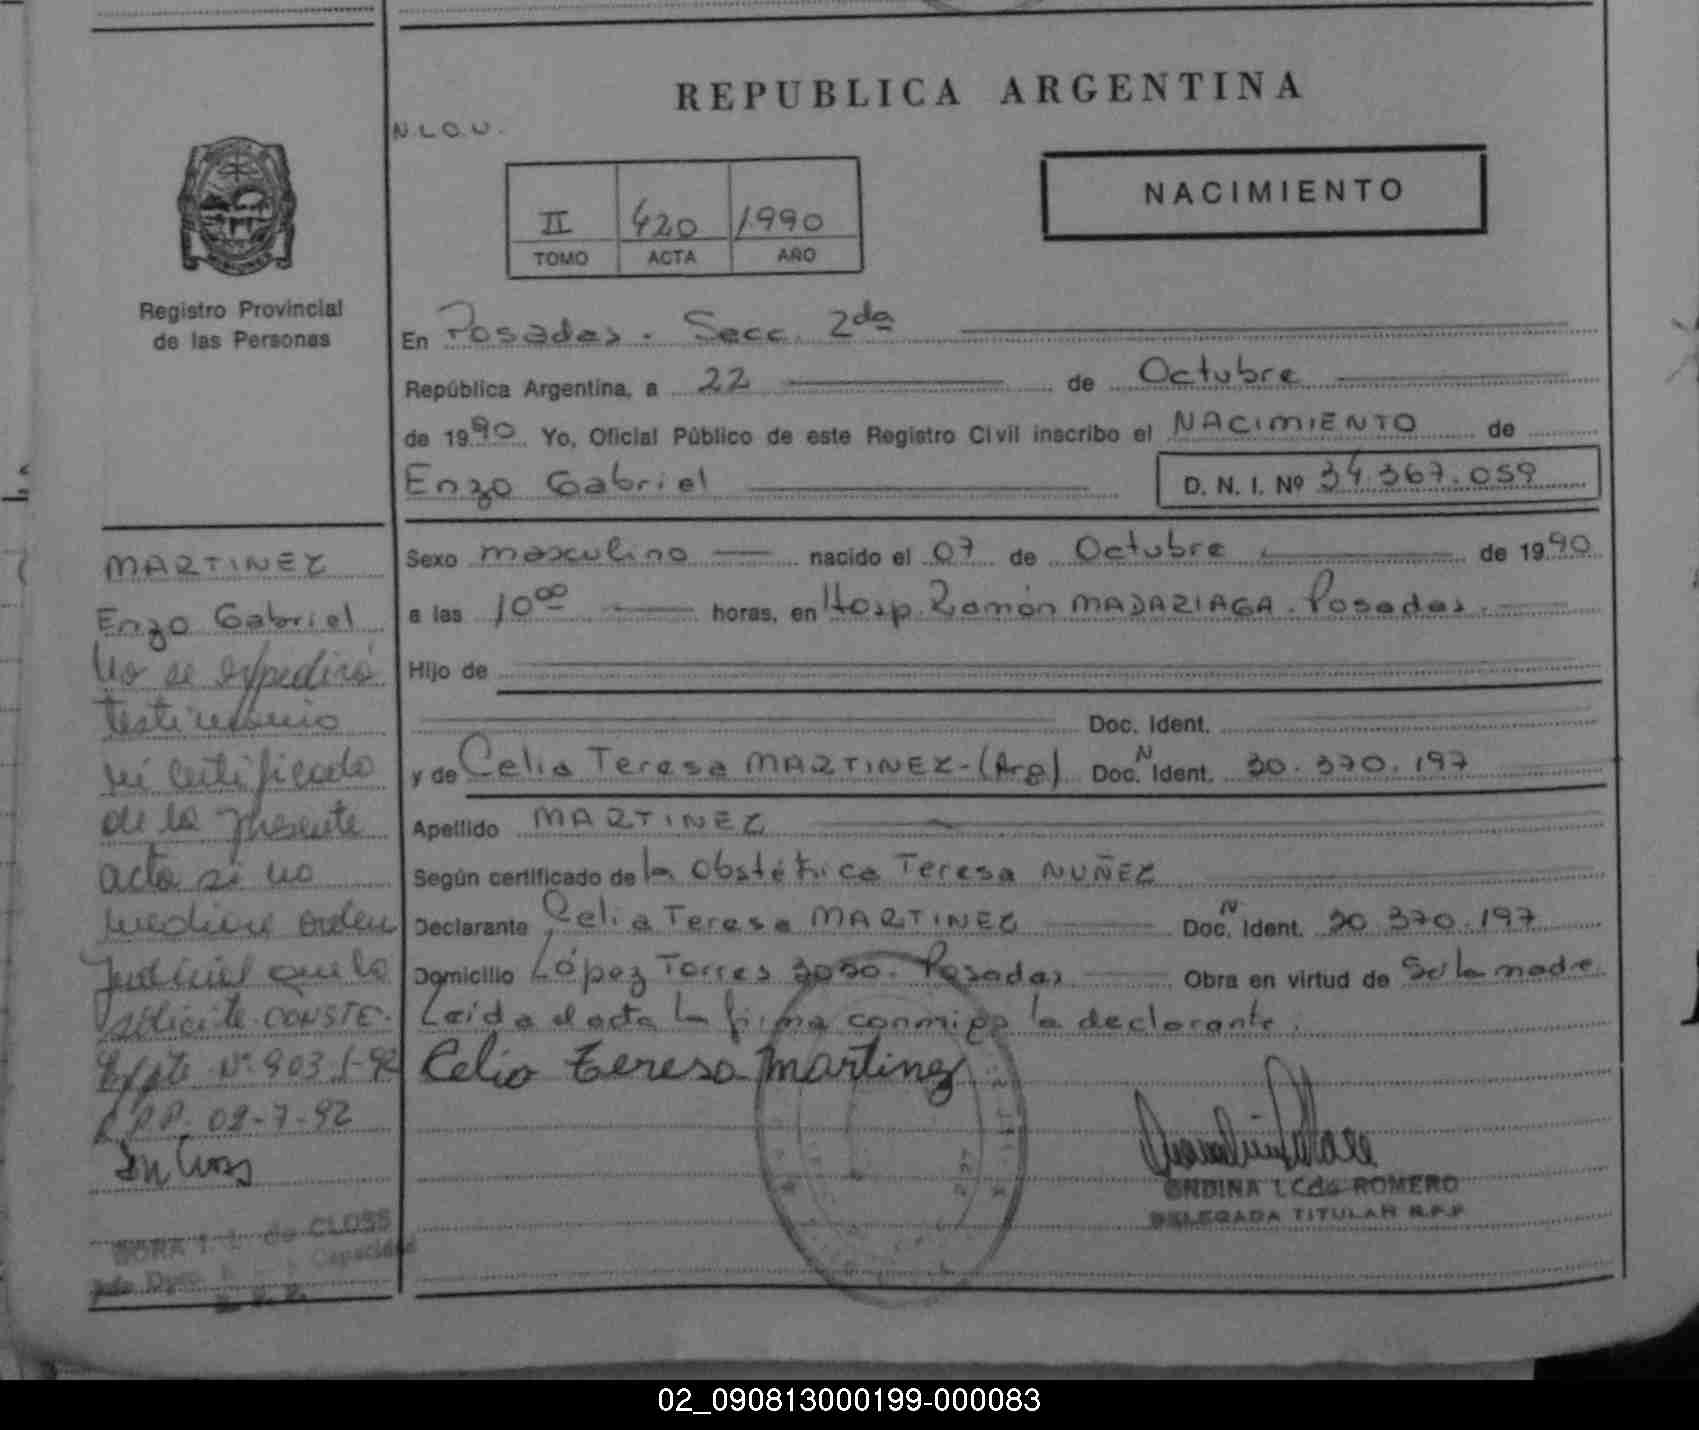 REPUBLICA ARGENTINA
N.L.O.U.
NACIMIENTO
II 420 1990
TOMO ACTA AÑO
Registro Provincial
de las Personas
En Posadas. Secc. 2da
República Argentina, a 22 de Octubre
de 1990 Yo, Oficial Público de este Registro Civil inscribo el NACIMIENTO de
Enzo Gabriel D. N. I. Nº 34.367.059
Sexo masculino nacido el 07 de Octubre de 1990
a las 10 00 horas, en Hosp. Ramón MADARIAGA. Posadas.
Hijo de
Doc. Ident.
y de Celia Teresa MARTINEZ-(Arg) Doc. N Ident. 30.370.197
Apellido MARTINEZ
Según certificado de la Obstétrica Teresa NUÑEZ
Declarante Celia Teresa MARTINEZ Doc. N Ident. 30.370.197
Domicilio López Torres 3050. Posadas Obra en virtud de Ser la madre
Leída el acta la firma conmigo la declarante.
Celia Teresa Martinez
ONDINA L. de ROMERO
DELEGADA TITULAR R.P.P
MARTINEZ
Enzo Gabriel
No se expedirá
testimonio
ni certificado
de la presente
acta si no
mediare orden
Judicial que lo
solicite. CONSTE.
Expte Nº 903 -92
R.P.P. 02-7-92
de CLOSS
Capacidad
02_090813000199-000083